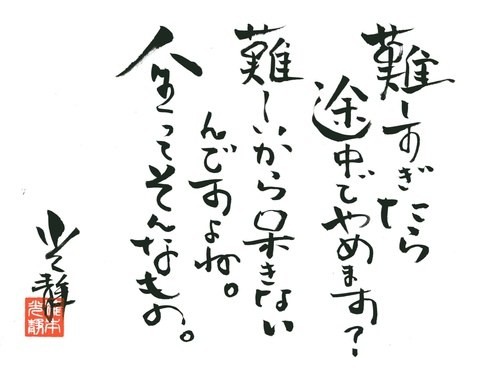 難しすぎたら
途中でやめます?
難しいから呆きない
んですよね。
人生ってそんなもの。
光静